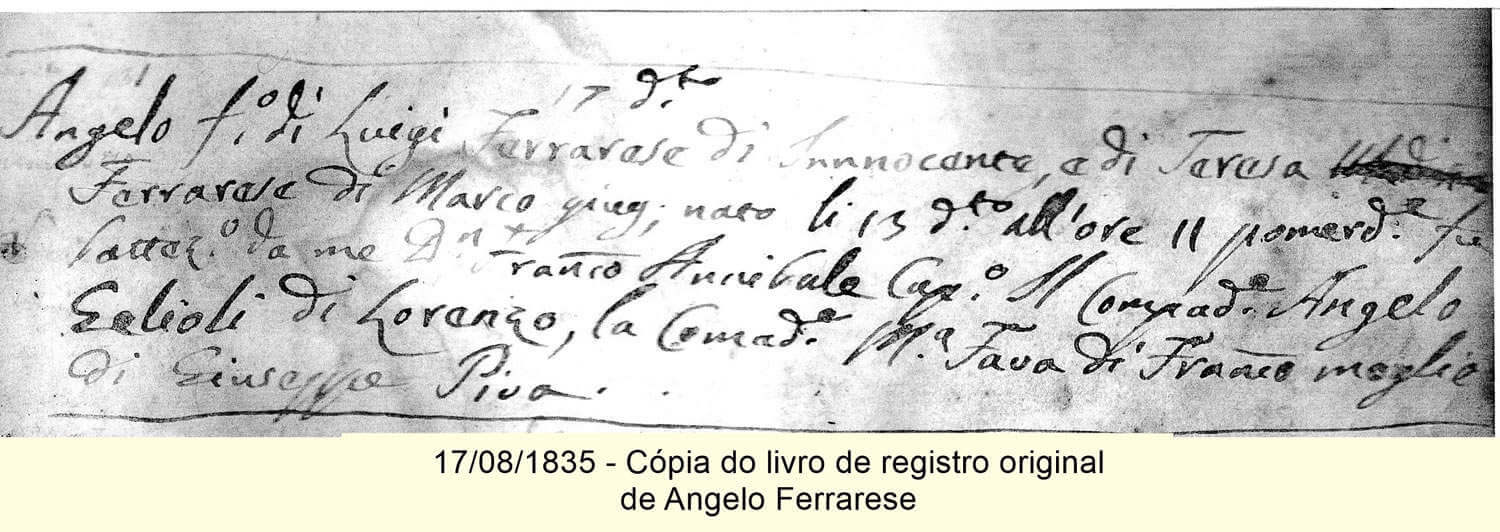 17 d.to
Angelo f.o di Luigi Ferrarese di Innnocente, e di Teresa
Ferrarese di Marco giug; nato li 13 d.to all'ore 11 pomerd.e fu
battez.o da me D.n Franco Annibale Cap.o Il Compad.e Angelo
Eglioli di Lorenzo, la Comad.e M.a Fava di Franco moglie
di Giuseppe Piva.
17/08/1835 - Cópia do livro de registro original
de Angelo Ferrarese